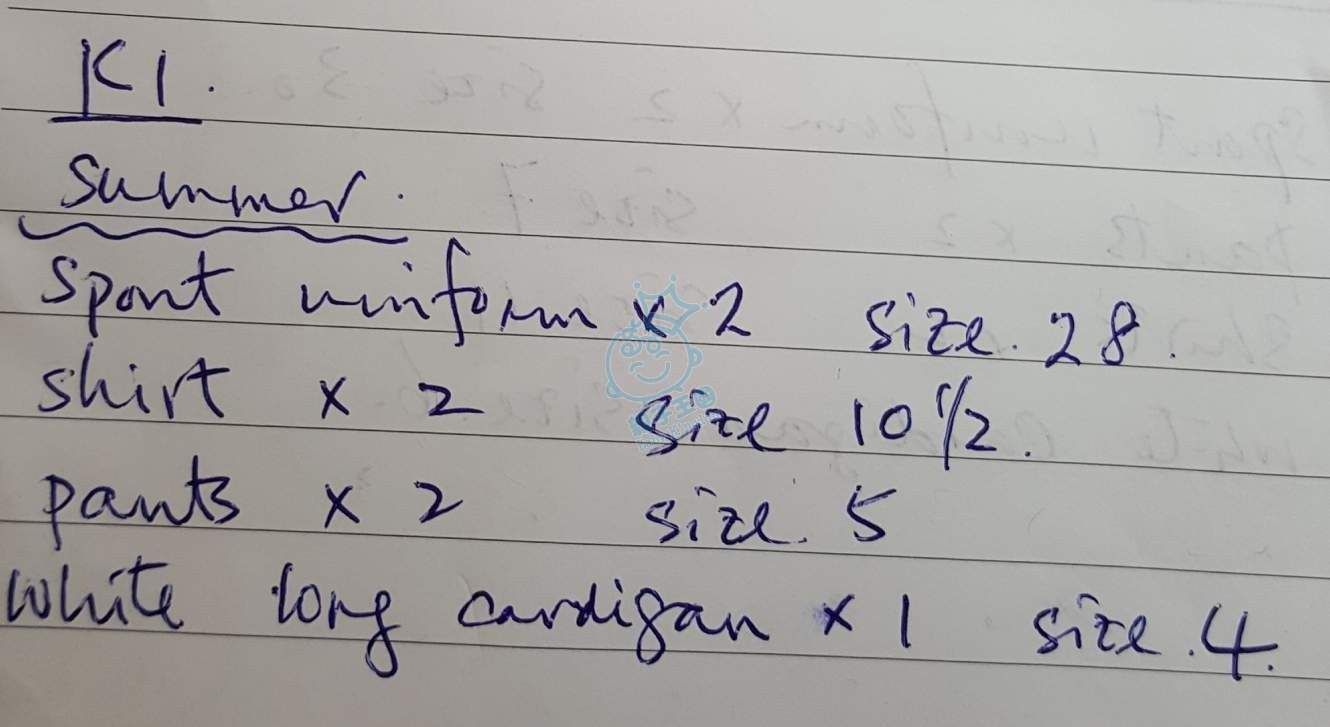 K1.
Summer.
Sport uniform x 2 size. 28.
shirt x 2 size 10 1/2.
pants x 2 size. 5
white long cardigan x 1 size. 4.